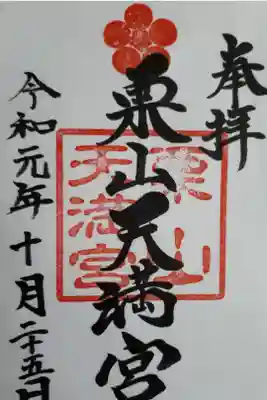 奉拝
栗山天満宮
栗山
天満宮
令和元年十月二十五日